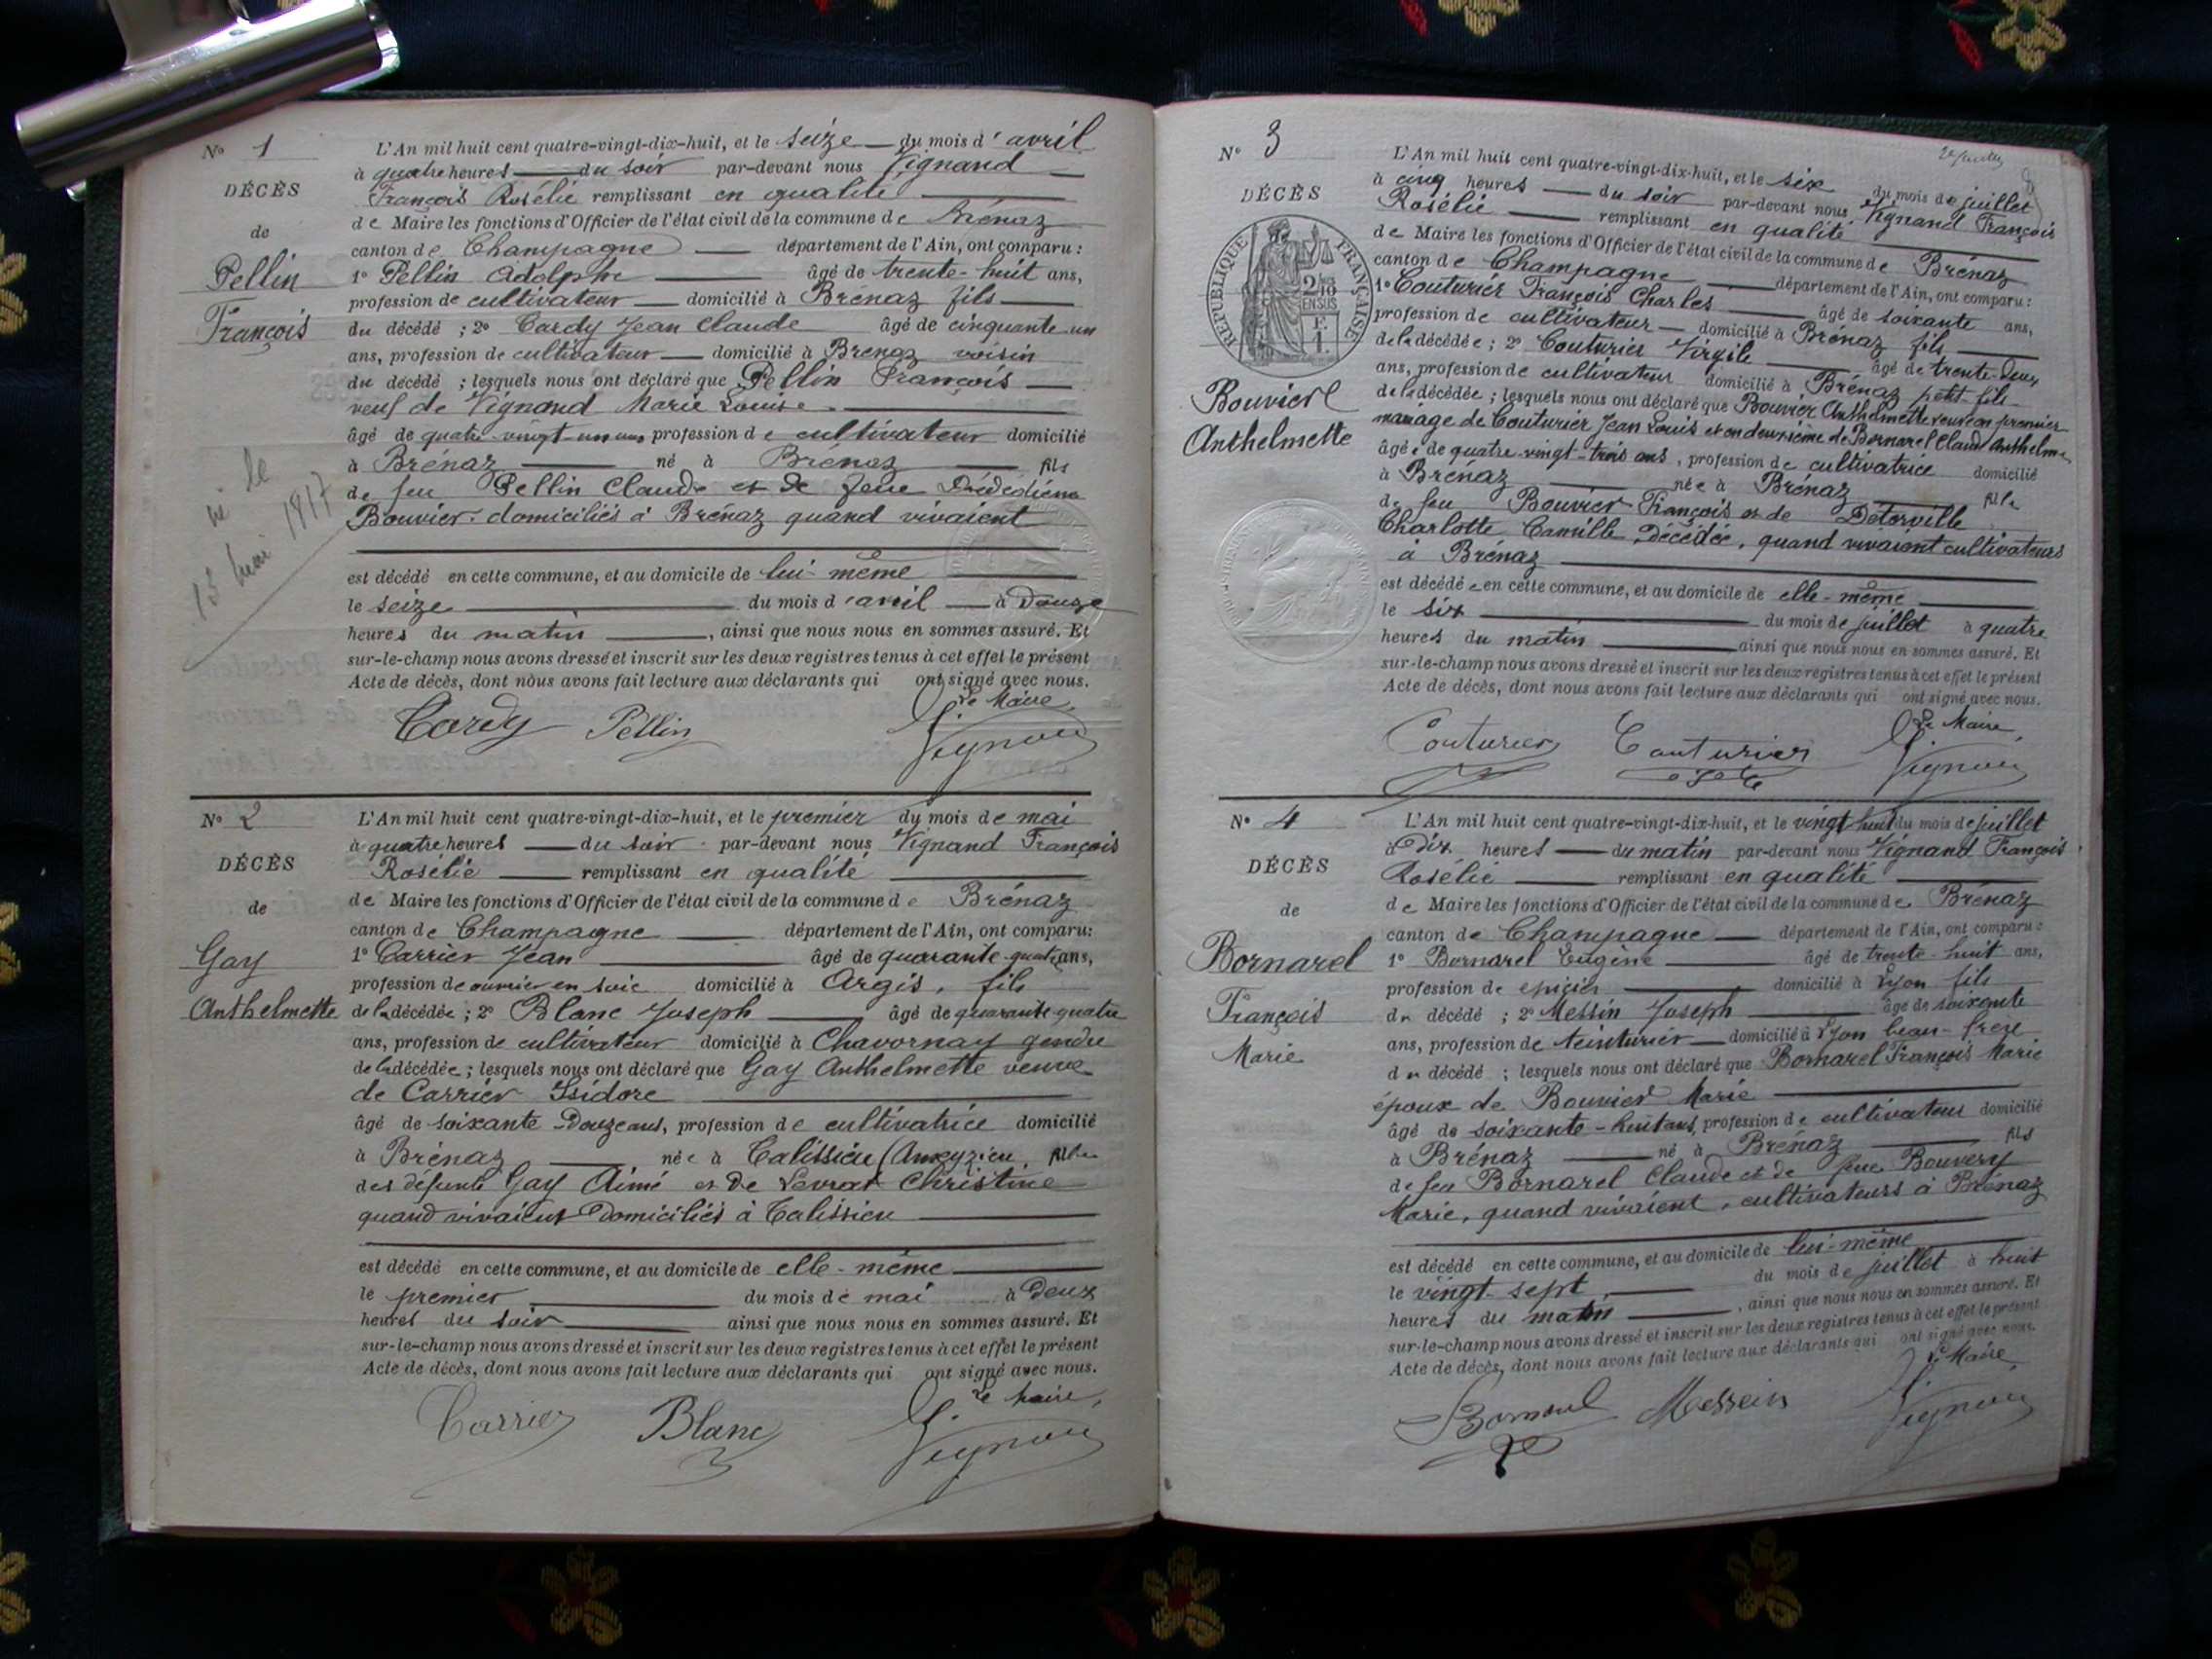 N° 1
DÉCÈS
de
Pellin
François
né le
15 mai 1817
L'An mil huit cent quatre-vingt-dix-huit, et le seize du mois d'avril
à quatre heures du soir par-devant nous Vignand
François Rosélie remplissant en qualité
de Maire les fonctions d'Officier de l'état civil de la commune de Brénaz
canton de Champagne département de l'Ain, ont comparu :
1° Pellin Adolphe âgé de trente-huit ans,
profession de cultivateur domicilié à Brénaz fils
du décédé ; 2° Cardy Jean Claude âgé de cinquante un
ans, profession de cultivateur domicilié à Brenaz voisin
du décédé ; lesquels nous ont déclaré que Pellin François
veuf de Vignand Marie Louise
âgé de quatre-vingt-un ans profession de cultivateur domicilié
à Brénaz né à Brénaz fils
de feu Pellin Claude et de feue
Bouvier domiciliés à Brénaz quand vivaient
est décédé en cette commune, et au domicile de lui-même
le seize du mois d'avril à Douze
heures du matin, ainsi que nous nous en sommes assuré. Et
sur-le-champ nous avons dressé et inscrit sur les deux registres tenus à cet effet le présent
Acte de décès, dont nous avons fait lecture aux déclarants qui ont signé avec nous.
Le Maire,
Cardy Pellin Vignand
N° 2
DÉCÈS
de
Gay
Anthelmette
L'An mil huit cent quatre-vingt-dix-huit, et le premier du mois de mai
à quatre heures du soir par-devant nous Vignand François
Rosélie remplissant en qualité
de Maire les fonctions d'Officier de l'état civil de la commune de Brénaz
canton de Champagne département de l'Ain, ont comparu :
1° Carrier Jean âgé de quarante-quatre ans,
profession de ouvrier en soie domicilié à Argis, fils
de la décédée ; 2° Blanc Joseph âgé de quarante-quatre
ans, profession de cultivateur domicilié à Chavornay gendre
de la décédée ; lesquels nous ont déclaré que Gay Anthelmette veuve
de Carrier Isidore
âgé de soixante Douze ans, profession de cultivatrice domicilié
à Brénaz née à Talissieu (Ameyzieu fille
des défunts Gay Aimé et de Levrat Christine
quand vivaient Domiciliés à Talissieu
est décédé en cette commune, et au domicile de elle-même
le premier du mois de mai à Deux
heures du soir ainsi que nous nous en sommes assuré. Et
sur-le-champ nous avons dressé et inscrit sur les deux registres tenus à cet effet le présent
Acte de décès, dont nous avons fait lecture aux déclarants qui ont signé avec nous.
Le Maire,
Carrier Blanc Vignand
N° 3
DÉCÈS
RÉPUBLIQUE FRANÇAISE
2/10 EN SUS
Bouvier
Anthelmette
L'An mil huit cent quatre-vingt-dix-huit, et le six du mois de juillet
à cinq heures du soir par-devant nous Vignand François
Rosélie remplissant en qualité
de Maire les fonctions d'Officier de l'état civil de la commune de Brénaz
canton de Champagne département de l'Ain, ont comparu :
1° Couturier François Charles âgé de soixante ans,
profession de cultivateur domicilié à Brénaz fils
de la décédée ; 2° Couturier Virgile âgé de trente-deux
ans, profession de cultivateur domicilié à Brénaz petit-fils
de la décédée ; lesquels nous ont déclaré que Bouvier Anthelmette veuve en premier
mariage de Couturier Jean Louis et en deuxième de Bornarel Claude Anthelme
âgée de quatre-vingt-trois ans, profession de cultivatrice domicilié
à Brénaz née à Brénaz fille
de feu Bouvier François et de Detorville
Charlotte Camille Décédée, quand vivaient cultivateurs
à Brénaz
est décédée en cette commune, et au domicile de elle-même
le six du mois de juillet à quatre
heures du matin ainsi que nous nous en sommes assuré. Et
sur-le-champ nous avons dressé et inscrit sur les deux registres tenus à cet effet le présent
Acte de décès, dont nous avons fait lecture aux déclarants qui ont signé avec nous.
Le Maire,
Couturier Couturier Vignand
N° 4
DÉCÈS
de
Bornarel
François
Marie
L'An mil huit cent quatre-vingt-dix-huit, et le vingt huit du mois de juillet
à Dix heures du matin par-devant nous Vignand François
Rosélie remplissant en qualité
de Maire les fonctions d'Officier de l'état civil de la commune de Brénaz
canton de Champagne département de l'Ain, ont comparu :
1° Bornarel Eugène âgé de trente-huit ans,
profession de épicier domicilié à Lyon fils
du décédé ; 2° Messin Joseph âgé de soixante
ans, profession de teinturier domicilié à Lyon beau-frère
du décédé ; lesquels nous ont déclaré que Bornarel François Marie
époux de Bouvier Marie
âgé de soixante-huit ans, profession de cultivateur domicilié
à Brénaz né à Brénaz fils
de feu Bornarel Claude et de feue Bouvery
Marie, quand vivaient, cultivateurs à Brénaz
est décédé en cette commune, et au domicile de lui-même
le vingt-sept du mois de juillet à huit
heures du matin, ainsi que nous nous en sommes assuré. Et
sur-le-champ nous avons dressé et inscrit sur les deux registres tenus à cet effet le présent
Acte de décès, dont nous avons fait lecture aux déclarants qui ont signé avec nous.
Le Maire,
Bornarel Messein Vignand